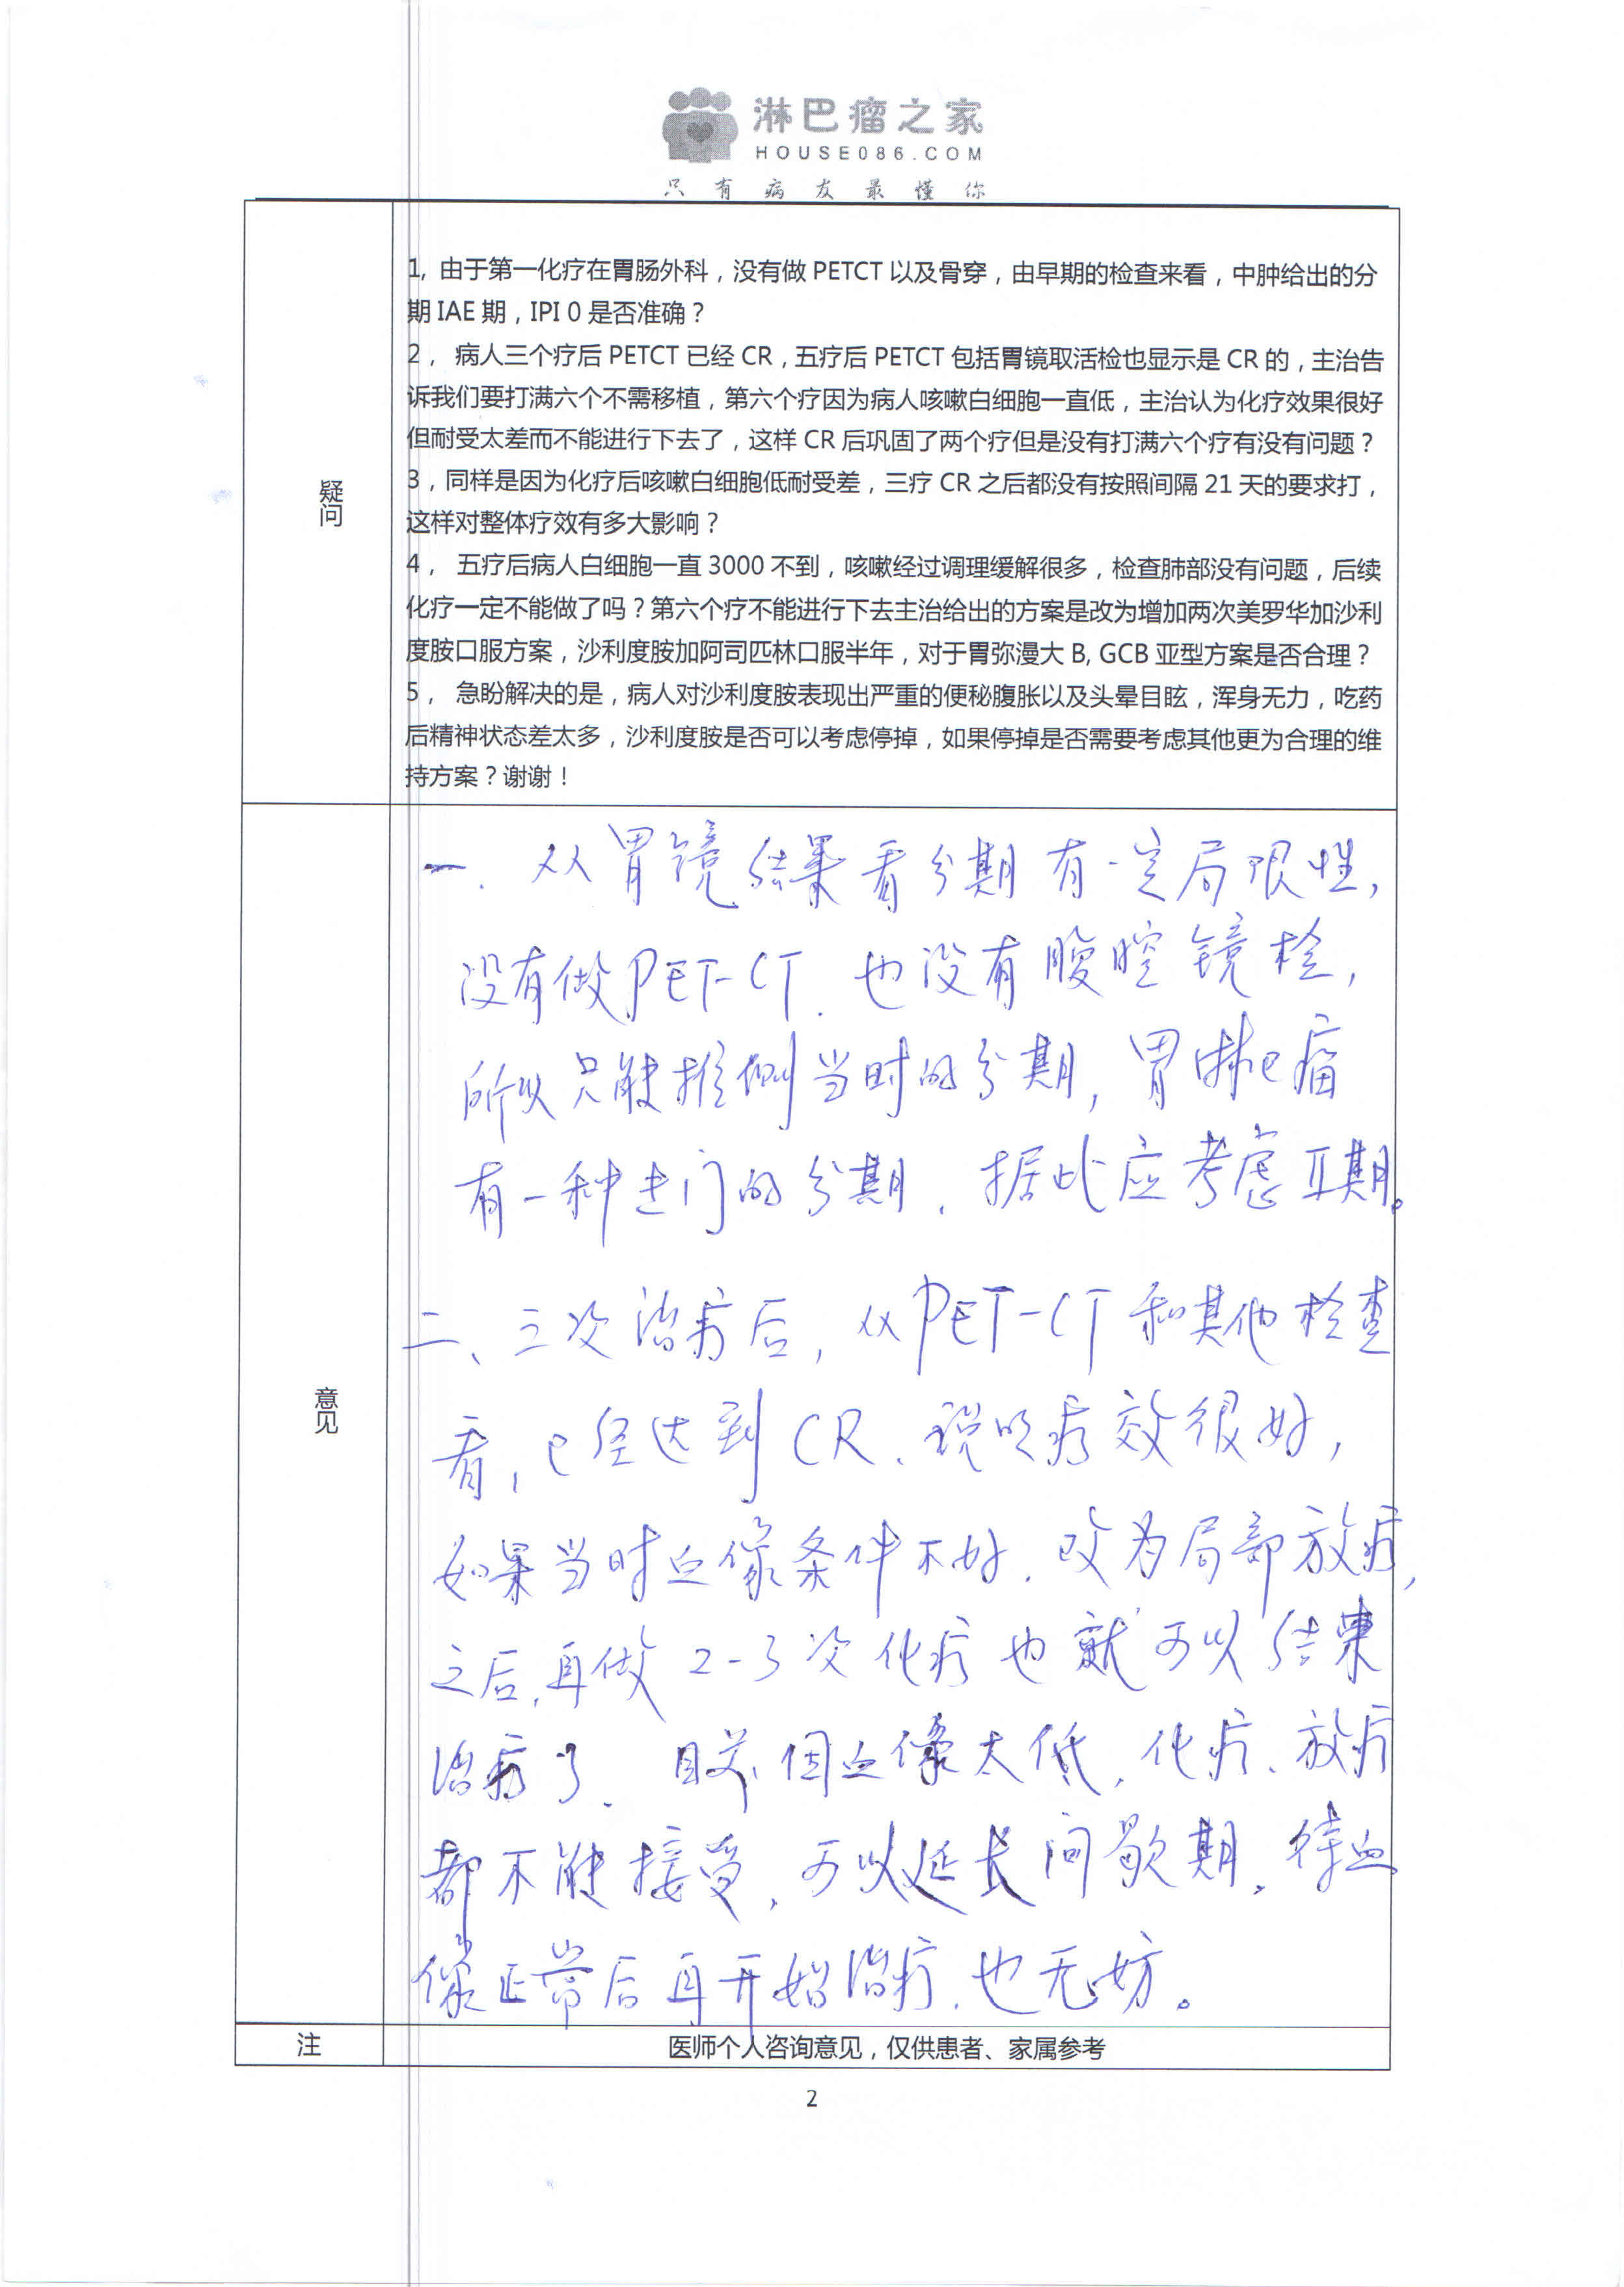 淋巴瘤之家
HOUSE086.COM
只有病友最懂你
疑问
1, 由于第一化疗在胃肠外科，没有做 PETCT 以及骨穿，由早期的检查来看，中肿给出的分
期 IAE 期，IPI 0 是否准确？
2， 病人三个疗后 PETCT 已经 CR，五疗后 PETCT 包括胃镜取活检也显示是 CR 的，主治告
诉我们要打满六个不需移植，第六个疗因为病人咳嗽白细胞一直低，主治认为化疗效果很好
但耐受太差而不能进行下去了，这样 CR 后巩固了两个疗但是没有打满六个疗有没有问题？
3，同样是因为化疗后咳嗽白细胞低耐受差，三疗 CR 之后都没有按照间隔 21 天的要求打，
这样对整体疗效有多大影响？
4， 五疗后病人白细胞一直 3000 不到，咳嗽经过调理缓解很多，检查肺部没有问题，后续
化疗一定不能做了吗？第六个疗不能进行下去主治给出的方案是改为增加两次美罗华加沙利
度胺口服方案，沙利度胺加阿司匹林口服半年，对于胃弥漫大 B, GCB 亚型方案是否合理？
5， 急盼解决的是，病人对沙利度胺表现出严重的便秘腹胀以及头晕目眩，浑身无力，吃药
后精神状态差太多，沙利度胺是否可以考虑停掉，如果停掉是否需要考虑其他更为合理的维
持方案？谢谢！
意见
一. 从胃镜结果看分期有一定局限性,
没有做PET-CT. 也没有腹腔镜检,
所以只能推侧当时的分期, 胃淋巴瘤
有一种专门的分期. 据此应考虑II期。
二、三次治疗后, 从PET-CT和其他检查
看, 已经达到CR. 说明疗效很好,
如果当时血像条件不好. 改为局部放疗,
之后, 再做2-3次化疗也就可以结束
治疗了. 目前因血像太低, 化疗、放疗
都不能接受, 可以延长间歇期. 待血
像正常后再开始治疗. 也无妨。
注
医师个人咨询意见，仅供患者、家属参考
2